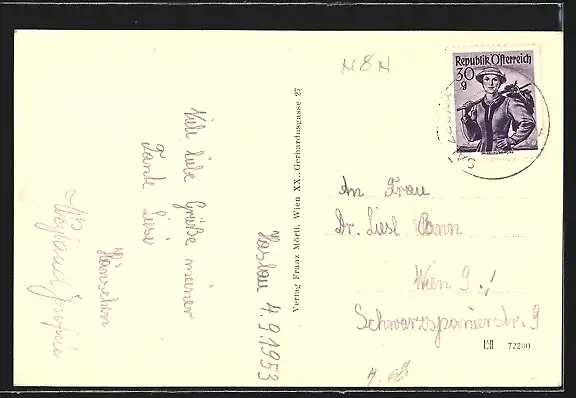 Republik Österreich
30
g
N 8 N
Viele liebe Grüße meiner
Tante Liesi
Hänschen
Haslau 4.9.1953
Verlag Franz Mörtl, Wien XX., Gerhardusgasse 27
An Frau
Dr. Liesl
Wien 9.,
Schwarzspanierstr. 9
72200